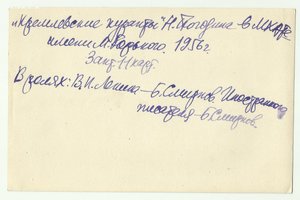 "Кремлевские куранты" Н. Погодина в МХАТе
имени М. Горького. 1956 г.
В ролях: В.И. Ленина – Б. Смирнов. Иностранного
писателя – Б. Смирнов.